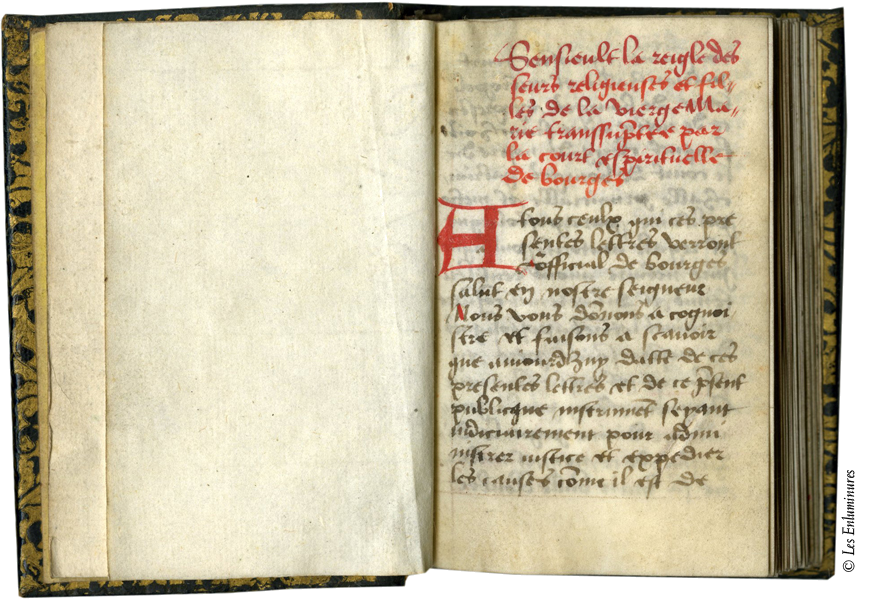 Sensieult la reigle des
seurs religieuses et fil-
les de la vierge Ma-
rie transsuptee par
la court espirituelle
de bourges
A tous ceulx qui ces pre
sentes lettres verront
l'official de bourges
salut en nostre seigneur
Nous vous donons a cognoi
stre et faisons a scavoir
que auiourdhuy datte de ces
presentes lettres et de ce psent
publicque instrument seyant
iudiciairement pour admi
nistrer iustice et expedier
les causes come il est de
© Les Enluminures